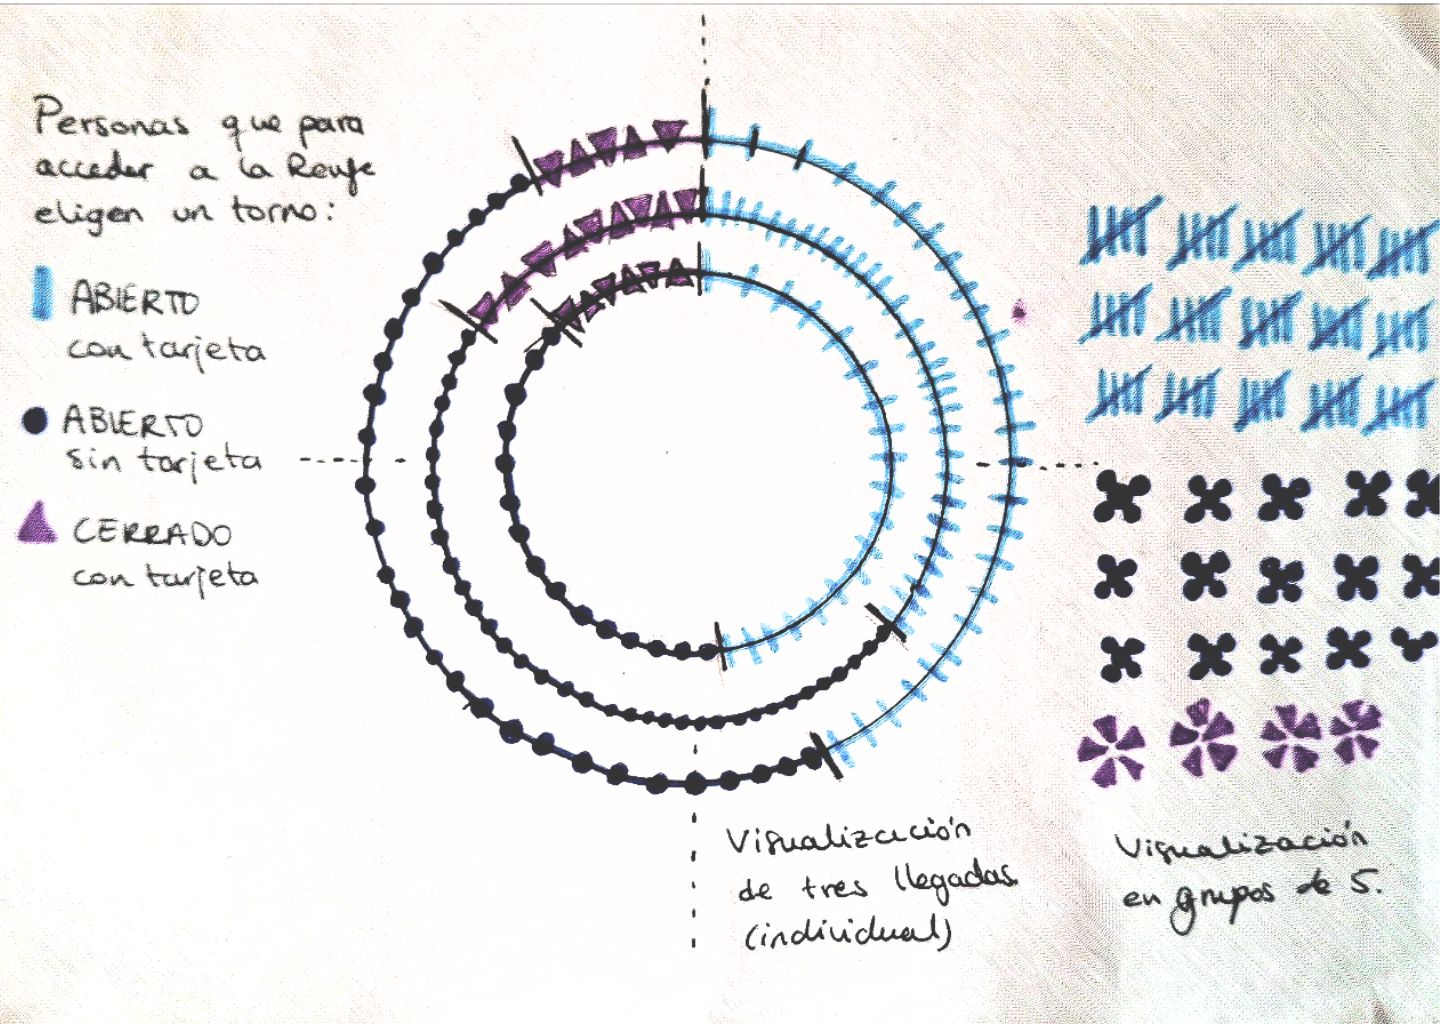 Personas que para
acceder a la Renfe
eligen un torno:
ABIERTO
con tarjeta
ABIERTO
sin tarjeta
CERRADO
con tarjeta
Visualización
de tres llegadas
(individual)
Visualización
en grupos de 5.